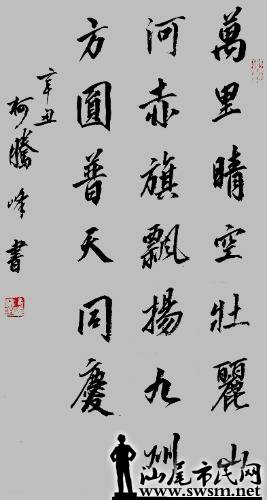 萬里晴空壯麗山
河赤旗飄揚九州
方圓普天同慶
辛丑
柯騰峰書
汕尾市民网
www.swsm.net